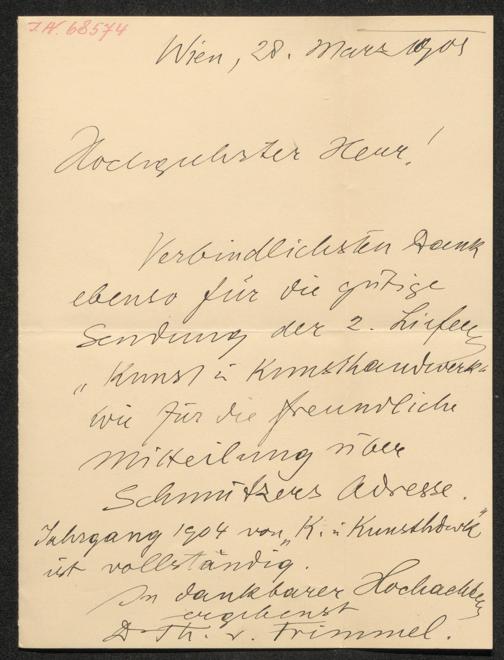 J.N. 68574
Wien, 28. März 1905
Hochgeehrter Herr!
Verbindlichsten Dank
ebenso für die gütige
Sendung der 2. Liefeg
„Kunst u Kunsthandwerk“
wie für die freundliche
Mitteilung über
Schmutzers Adresse.
Jahrgang 1904 von „K. u Kunsthdwk“
ist vollständig.
In dankbarer Hochachtg
ergebenst
Dr Th. v. Frimmel.